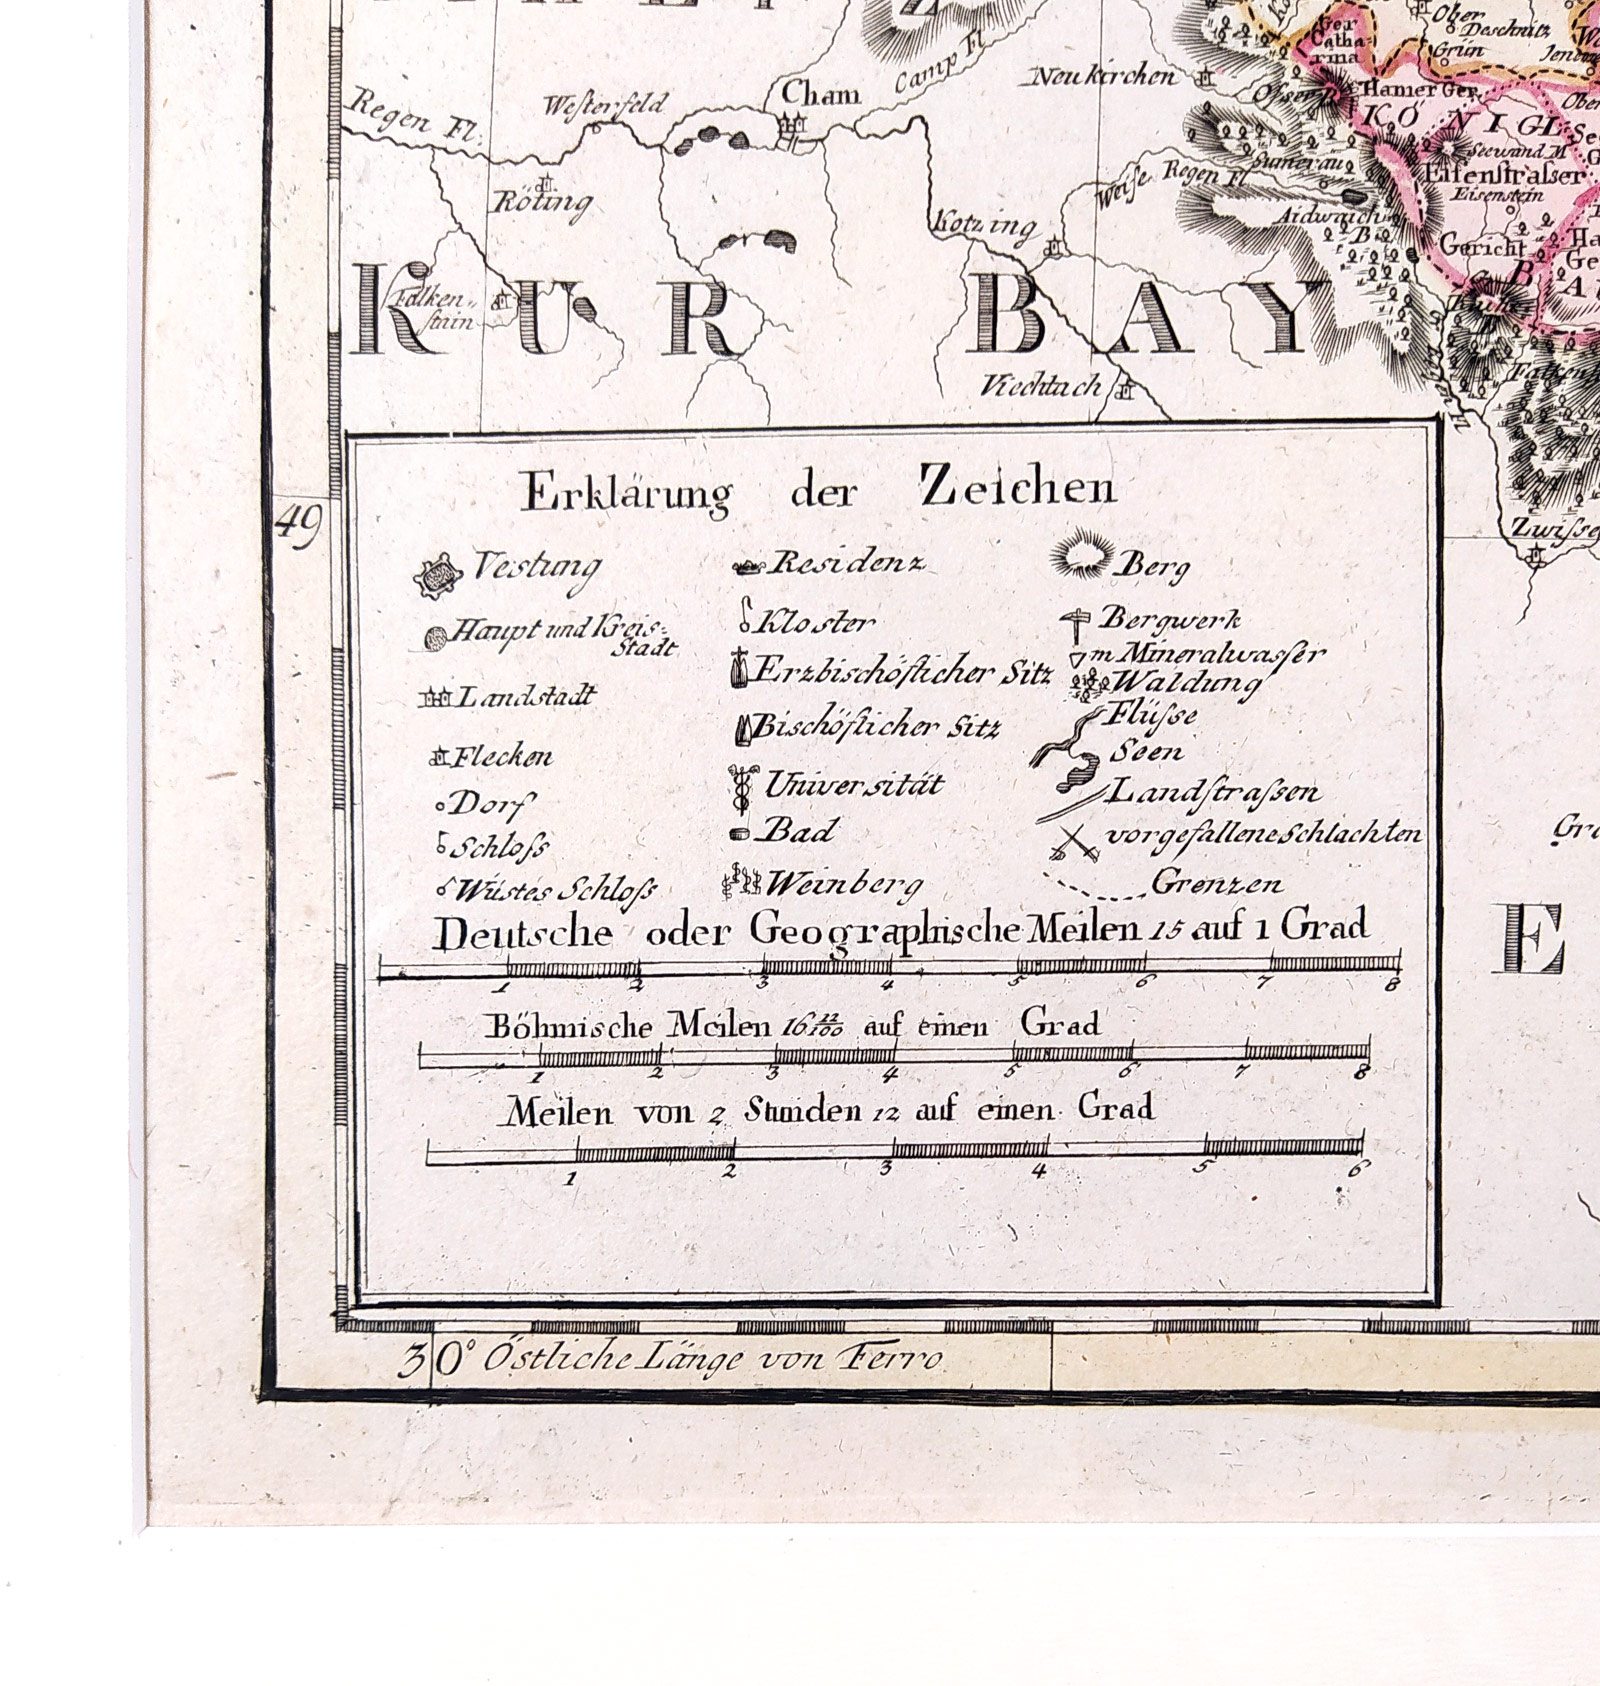 Ober
Deschnitz
Grün
Ger
Catha-
rina
Camp Fl.
Neukirchen
Cham
Hamer Ger.
Regen Fl:
Westerfeld
Osser B
KÖNIGL
Seewand M
Sumerau
Eisenstrasser
Weise Regen Fl
Eisenstein
Röting
Aidwaich
B.
Kotzing
Gericht
Ha
Ge
Falken-
stain
KUR BAY
Viechtach
Erklärung der Zeichen
49
Vestung
Haupt und Kreis-
Stadt
Landstadt
Flecken
Dorf
Schloſs
Wüstes Schloſs
Residenz
Kloster
Erzbischöflicher Sitz
Bischöflicher Sitz
Universität
Bad
Weinberg
Berg
Bergwerk
m Mineralwaſser
Waldung
Flüſse
Seen
Landſtraſsen
vorgefallene Schlachten
Grenzen
Zwiſse
Gra
E
Deutsche oder Geographische Meilen 15 auf 1 Grad
1 2 3 4 5 6 7 8
Böhmische Meilen 16 22/100 auf einen Grad
1 2 3 4 5 6 7 8
Meilen von 2 Stunden 12 auf einen Grad
1 2 3 4 5 6
30° Östliche Länge von Ferro